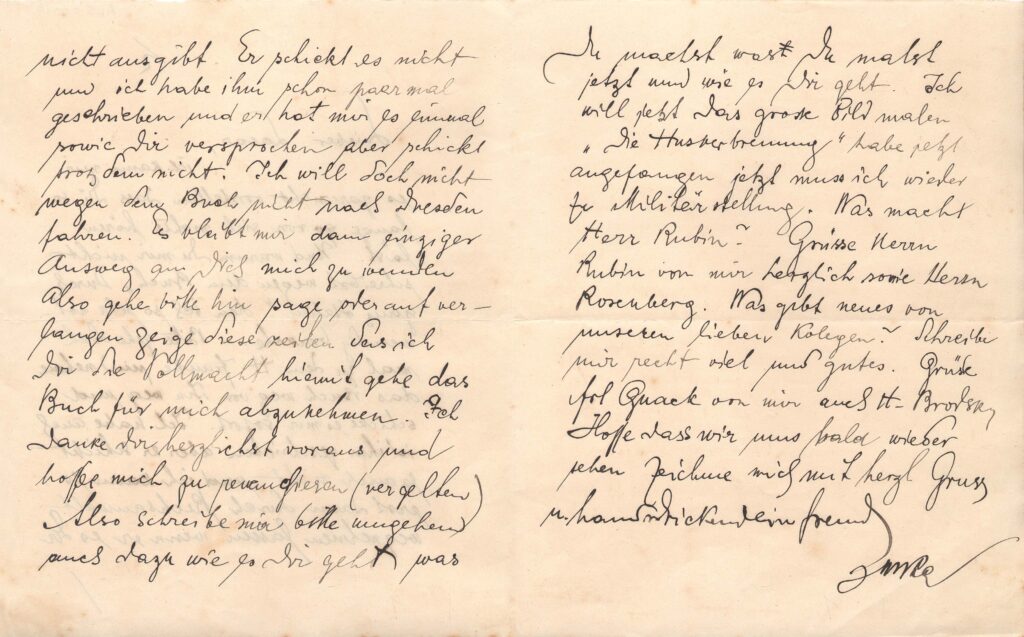 nicht ausgibt. Er schickt es nicht
und ich habe ihm schon paar mal
geschrieben und er hat mir es einmal
sowie Dir versprochen aber schickt
trotzdem nicht. Ich will doch nicht
wegen dem Buch nicht nach Dresden
fahren. Es bleibt mir dann einziger
Ausweg an Dich mich zu wenden
Also gehe bitte hin sage oder auf ver-
langen zeige diese zeilen das ich
Dir die Vollmacht hiemit gebe das
Buch für mich abzunehmen. Ich
danke Dir herzlichst voraus und
hoffe mich zu revanchieren (vergelten)
Also schreibe mir bitte umgehend
auch dazu wie es Dir geht was
Du machst wast Du malst
jetzt und wie es Dir geht. Ich
will jetzt das grosse Bild malen
„Die Husverbrennung" habe jetzt
angefangen jetzt muss ich wieder
zu Militärstellung. Was macht
Herr Rubin? Grüsse Herrn
Rubin von mir herzlich sowie Herrn
Rosenberg. Was gibt neues von
unseren lieben Kolegen? Schreibe
mir recht viel und gutes. Grüße
Quack von mir auch H. Brodsky
Hoffe dass wir uns bald wieder
sehen zeichne mich mit herzl Gruss
u. handrdückend ein freund